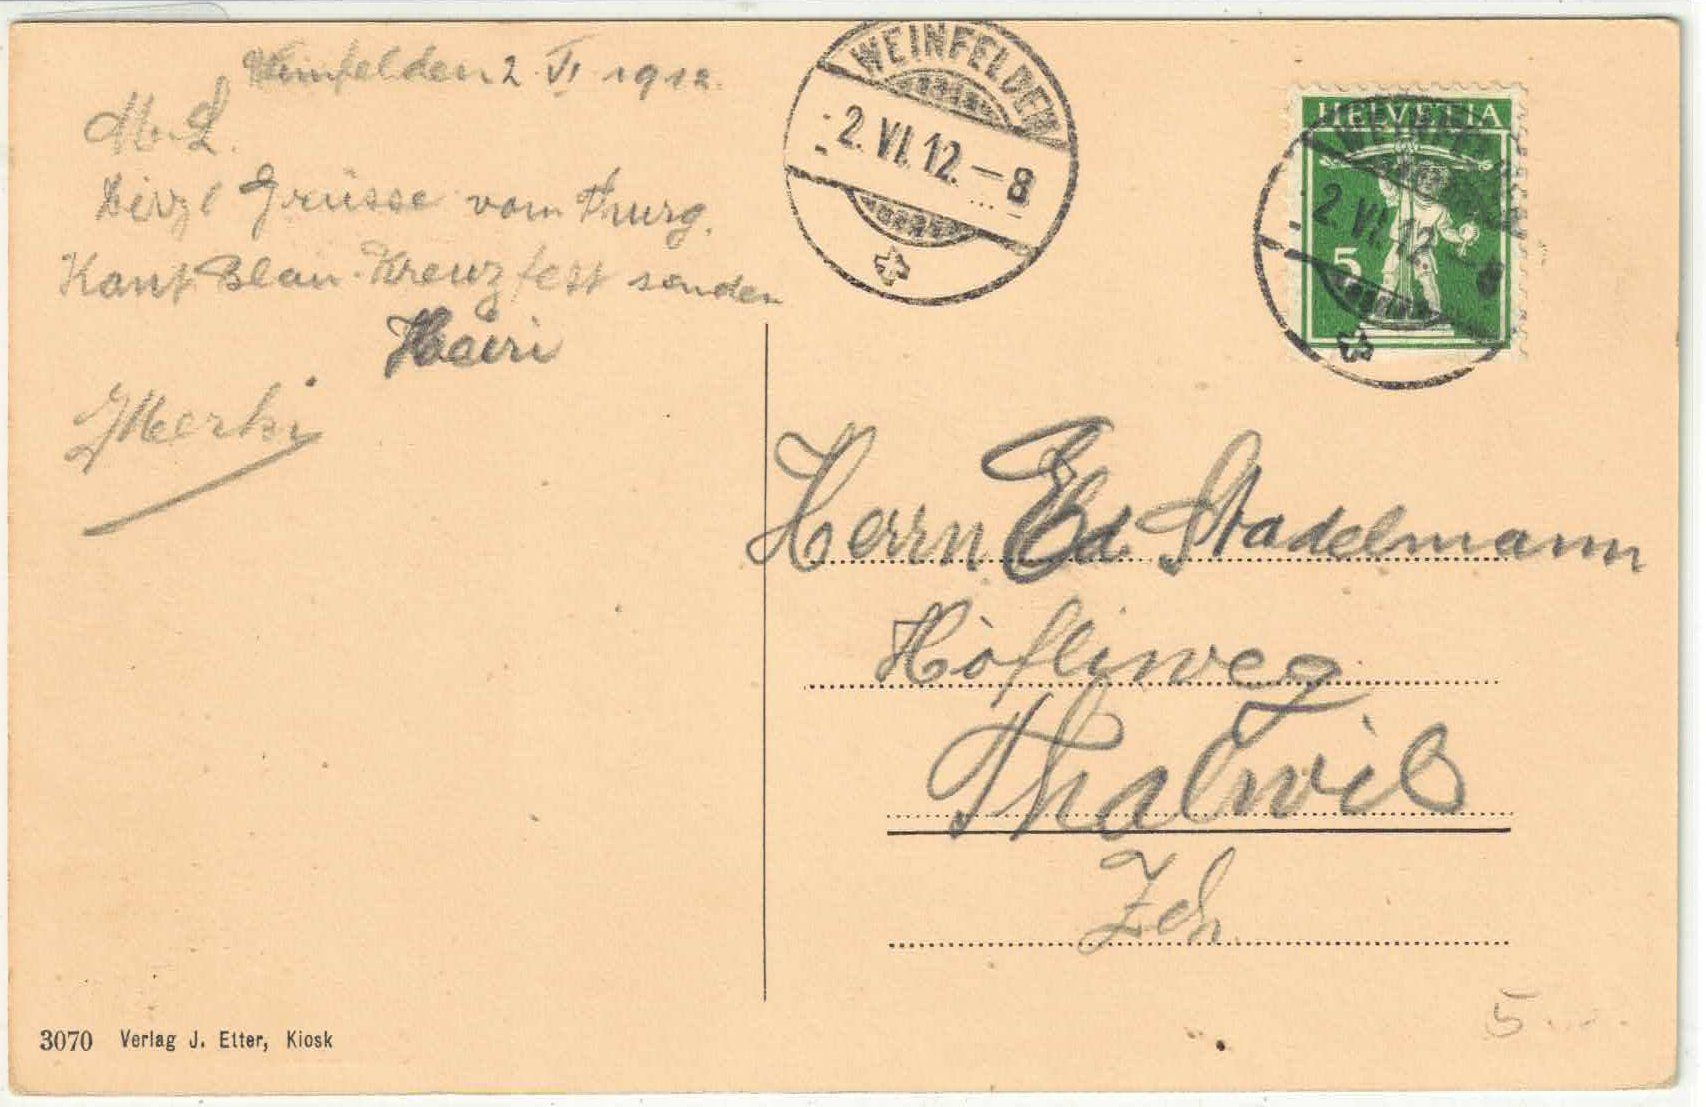 Weinfelden 2. VI 1912.
M. L.
Herzl Grüsse vom Thurg.
Kant Blau-Kreuzfest senden
Heiri
J Merki
WEINFELDEN
2. VI. 12. – 8
HELVETIA
5
2. VI. 12. – 8
Herrn Ed. Stadelmann
Höfliweg
Thalwil
Zch.
3070 Verlag J. Etter, Kiosk
5